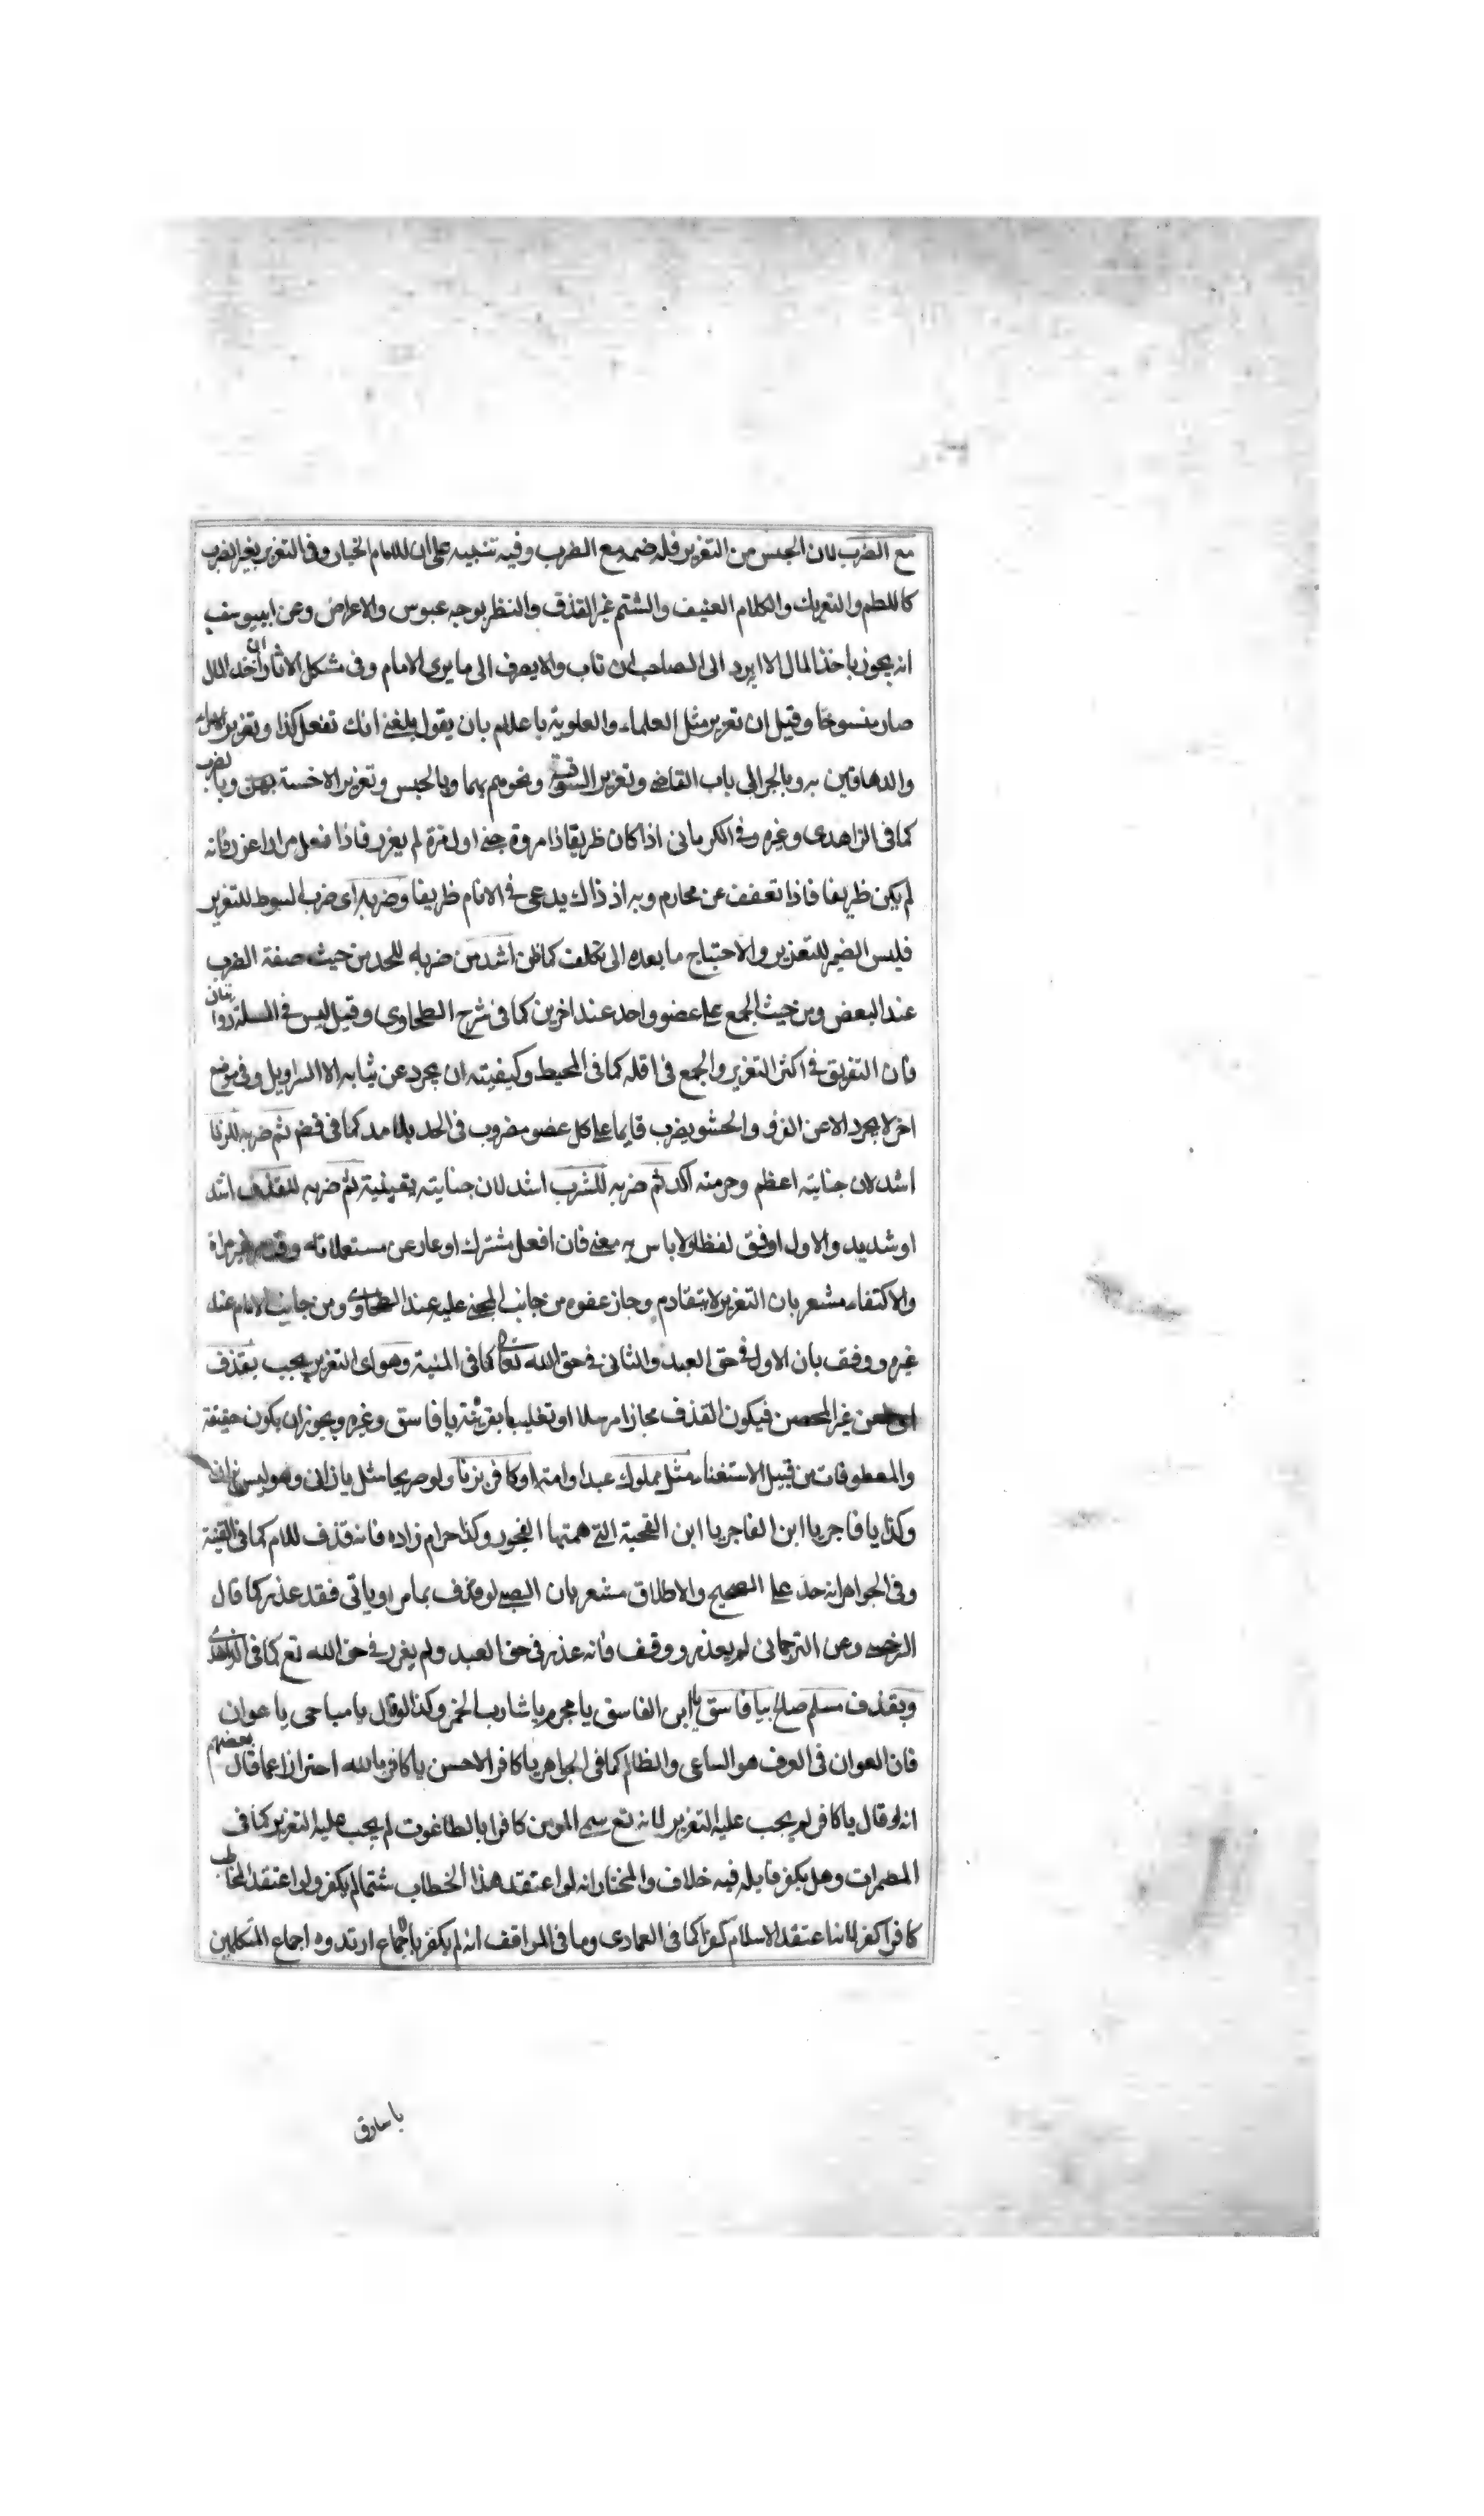 مع الضرب لان الحبس من التعزير فله ضمه مع الضرب وفيه تنبيه على ان للامام الخيار وفى التعزير بغير الضرب
كاللطم والتعريك والكلام العنيف والشتم غير القذف والنظر بوجه عبوس والاعراض وعن ابييوسف
انه يجوز باخذ المال الا انه يرد الى الصاحب ان تاب والا يصرف الى ما يرى الامام وفى مشكل الاثار ان اخذ المال
صار منسوخا وقيل ان تعزير مثل العلماء والعلوية باعلام بان يقول بلغنى انك تفعل كذا وتعزير الامراء
والدهاقين به وبالجر الى باب القاضى وتعزير السوقية ونحوهم بهما وبالحبس وتعزير الاخسة بهن وبالضرب
كما فى الزاهدى وغيره وفى الكرمانى اذا كان ظريفا ذا مروة جنى اول مرة لم يعزر فاذا فعل مرارا عزر فانه
لم يكن ظريفا فاذا تعفف عن محارم ربه اذ ذاك يدعى فى الانام ظريفا وضربه اى ضرب السوط للتعزير
فليس الضمير للتعزير والا احتياج ما بعده الى تكلف كما ظن اشد من ضربه للحد من حيث صفة الضرب
عند البعض ومن حيث الجمع على عضو واحد عند اخرين كما فى شرح الطحاوى وقيل ليس فى المسئلة روايتان
فان التفريق فى اكثر التعزير والجمع فى اقله كما فى المحيط وكيفيته ان يجرد عن ثيابه الا السراويل وفى موضع
اخر لا يجرد الا عن الفرو والحشو يضرب قايما على كل عضو مضروب فى الحد بلا مد كما فى ثم ضربه للزنا
اشد لان جنايته اعظم وحرمته اكد ثم ضربه للشرب اشد لان جنايته يقينية ثم ضربه للقذف اشد
او شديد والاول اوفق لفظا ولا باس به معنى فان افعل مشترك او عار عن مستعملاته
والاكتفاء مشعر بان التعزير لا يتقادم وجاز عفوه من جانب المجنى عليه عند الطحاوى ومن جانب الامام عند
غيره ووفق بان الاول فى حق العبد والثانى فى حق الله تعالى كما فى المنية وهو اى التعزير يجب بقذف
غير المحصن فيكون القذف مجازا مرسلا او تغليبا بقرينة يا فاسق وغيره ويجوز ان يكون حقيقة
والمعطوفات من قبيل الاستغناء مثل مملوك عبدا وامة او كافر بزنا ولو صريحا مثل يا زان وهو ليس بزان
وكذا يا فاجر يا ابن الفاجر يا ابن القحبة التى همتها الفجور وكذا حرام زاده فانه قذف للام كما فى القنية
وفى الجواهر انه حد على الصحيح والاطلاق مشعر بان الصبى لو قذف بما مر او ياتى فقد عذر كما قال
السرخسى وعن الترجمانى لم يعذر ووقف فانه عذر فى حق العبد ولم يغرر فى حق الله تع كما فى الزاهدى
وبقذف مسلم صالح بيا فاسق يا ابن الفاسق يا مجرم يا شارب الخمر وكذا لو قال يا مباحى يا عوان
فان العوان فى العرف هو الساعى والظالم كما فى الجواهر يا كافر الاحسن يا كافر بالله احترازا عما قال بعضهم
انه لو قال يا كافر لم يجب عليه التعزير لانه تع سمى المومن كافرا بالطاغوت لم يجب عليه التعزير كما فى
المضمرات وهل يكفر قايله فيه خلاف والمختار انه لو اعتقد هذا الخطاب شتما لم يكفر ولو اعتقد المخاطب
كافرا كفر لانه اعتقد الاسلام كفرا كما فى العمادى وما فى المواقف انه لم يكفر باجماع ارتد وه اجماع المتكلمين
يا سارق